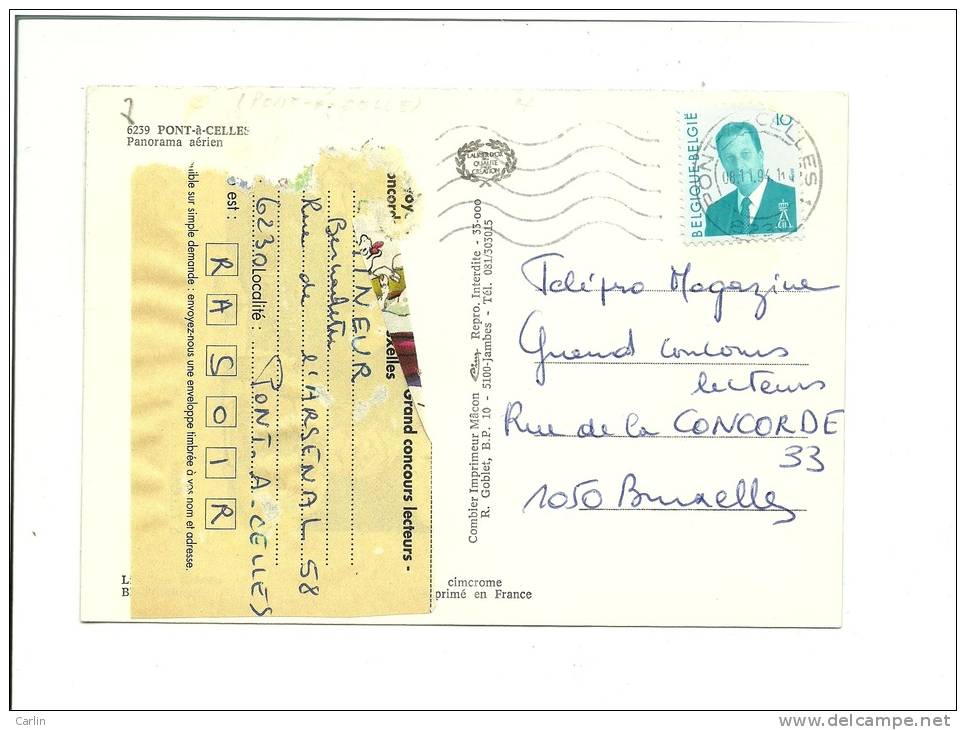 (PONT-A-CELLES)
6239 PONT-à-CELLES
Panorama aérien
LAURIER D'OR
DE LA
QUALITÉ
CRÉATION
10
BELGIQUE-BELGIË
PONT-A-CELLES
08.11.94
Télépro Magazine
Grand concours
lecteurs
Rue de la CONCORDE
33
1050 Bruxelles
Combier Imprimeur Mâcon Repro. Interdite - 33-000
R. Goblet, B.P. 10 - 5100-Jambes - Tél. 081/303015
Grand concours lecteurs -
xelles
Bernadette
Rue de l'ARSENAL 58
6230 Localité : PONT-A-CELLES
est :
R A S O I R
nible sur simple demande : envoyez-nous une enveloppe timbrée à vos nom et adresse.
cimcrome
primé en France
Carlin
www.delcampe.net